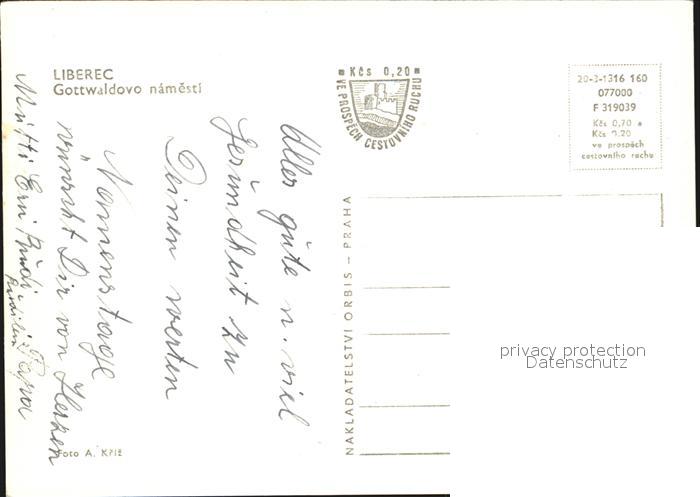 LIBEREC
Gottwaldovo náměstí
Kčs 0,20
VE PROSPĚCH CESTOVNÍHO RUCHU
20-3-1316 160
077000
F 319039
Kčs 0,70 a
Kčs 0.20
ve prospěch
cestovního ruchu
Alles gute u. viel
Gesundheit zu
Deinen werten
Namenstage
wünscht Dir von Herzen
Mutti Erni Rudi u.
Papa
NAKLADATELSTVÍ ORBIS – PRAHA
Foto A. Kříž
privacy protection
Datenschutz